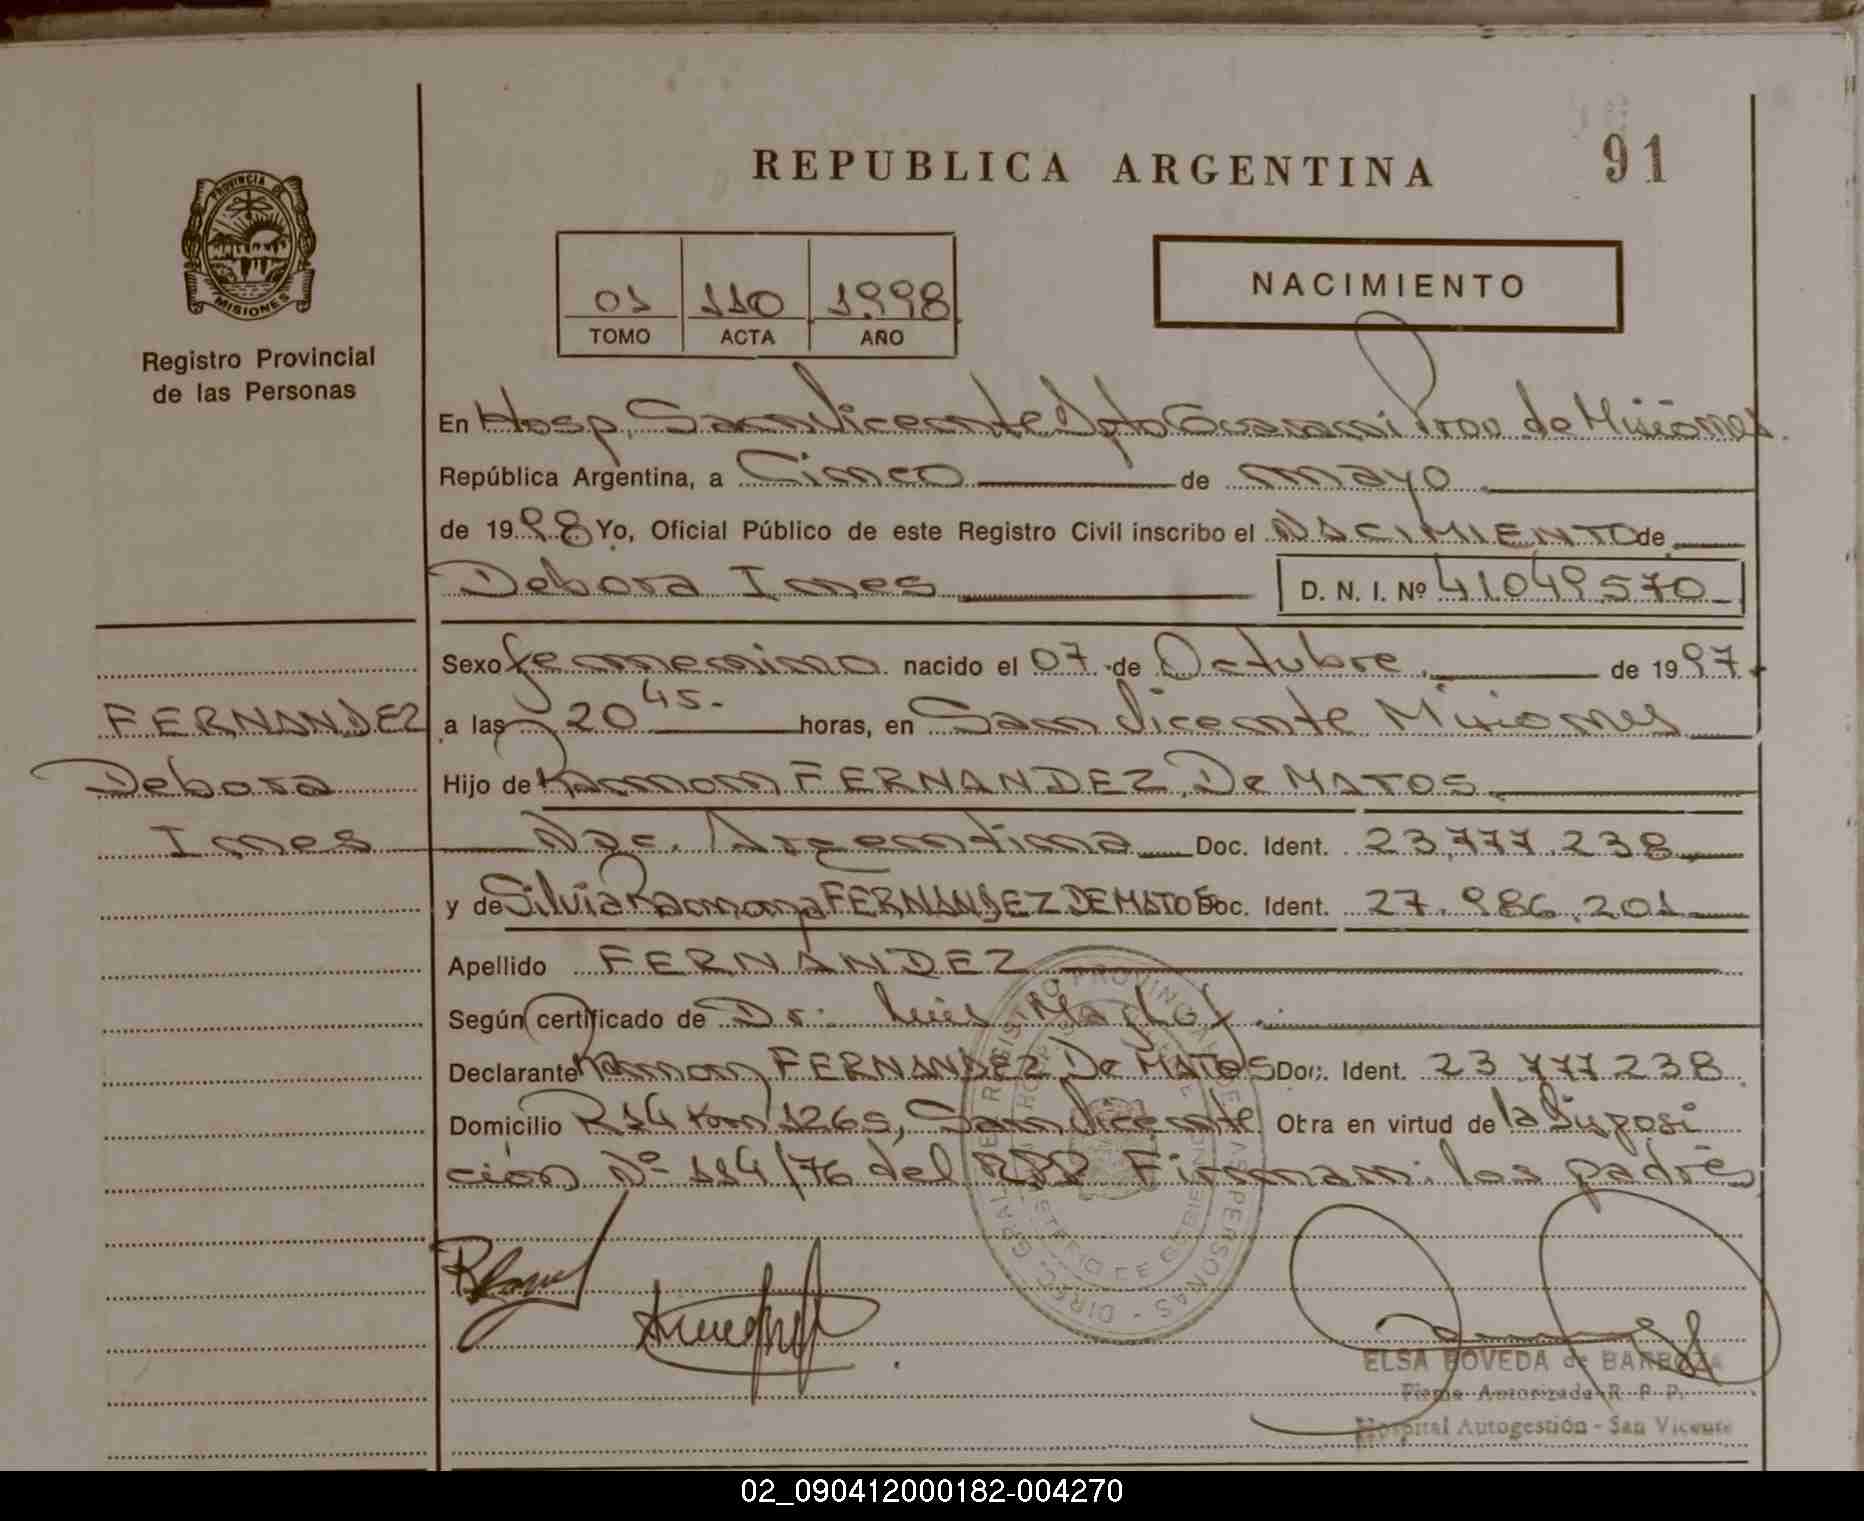 REPUBLICA ARGENTINA
91
PROVINCIA DE
MISIONES
Registro Provincial
de las Personas
01 110 1998
TOMO ACTA AÑO
NACIMIENTO
En Hosp. San Vicente Dpto Guarani Prov de Misiones
República Argentina, a Cinco de mayo
de 1998 Yo, Oficial Público de este Registro Civil inscribo el NACIMIENTO de
Debora Ines D. N. I. Nº 41049570
Sexo femenino nacido el 07 de Octubre de 1997
FERNANDEZ
a las 20 45 horas, en San Vicente Misiones
Debora
Hijo de Ramon FERNANDEZ De MATOS
Ines
Nac. Argentina Doc. Ident. 23.777.238
y de Silvia Ramona FERNANDEZ DE MATOS Doc. Ident. 27.986.201
Apellido FERNANDEZ
Según certificado de Dr. Luis
Declarante Ramon FERNANDEZ De MATOS Doc. Ident. 23.777.238
Domicilio R14 Km 1265, San Vicente Obra en virtud de la Disposi
ción Nº 114/76 del RPP Firman: los padres
REGISTRO PROVINCIAL DE LAS PERSONAS - DIREC. GRAL.
MINISTERIO DE GOBIERNO
ELSA BOVEDA de BARBOZA
Firma Autorizada R. P. P.
Hospital Autogestión - San Vicente
02_090412000182-004270